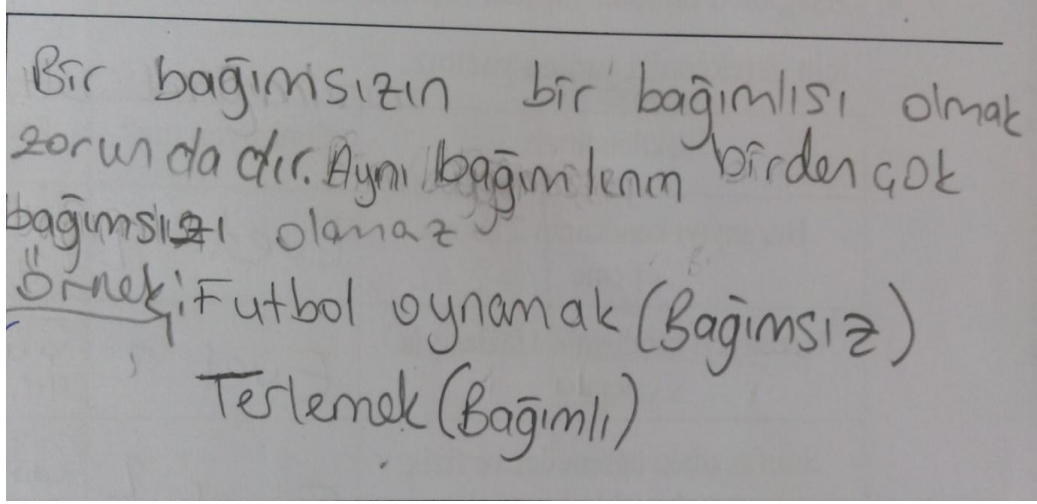 Bir bağımsızın bir bağımlısı olmak
zorundadır. Aynı bağımlının birden çok
bağımsızı olamaz
Örnek; Futbol oynamak (Bağımsız)
Terlemek (Bağımlı)